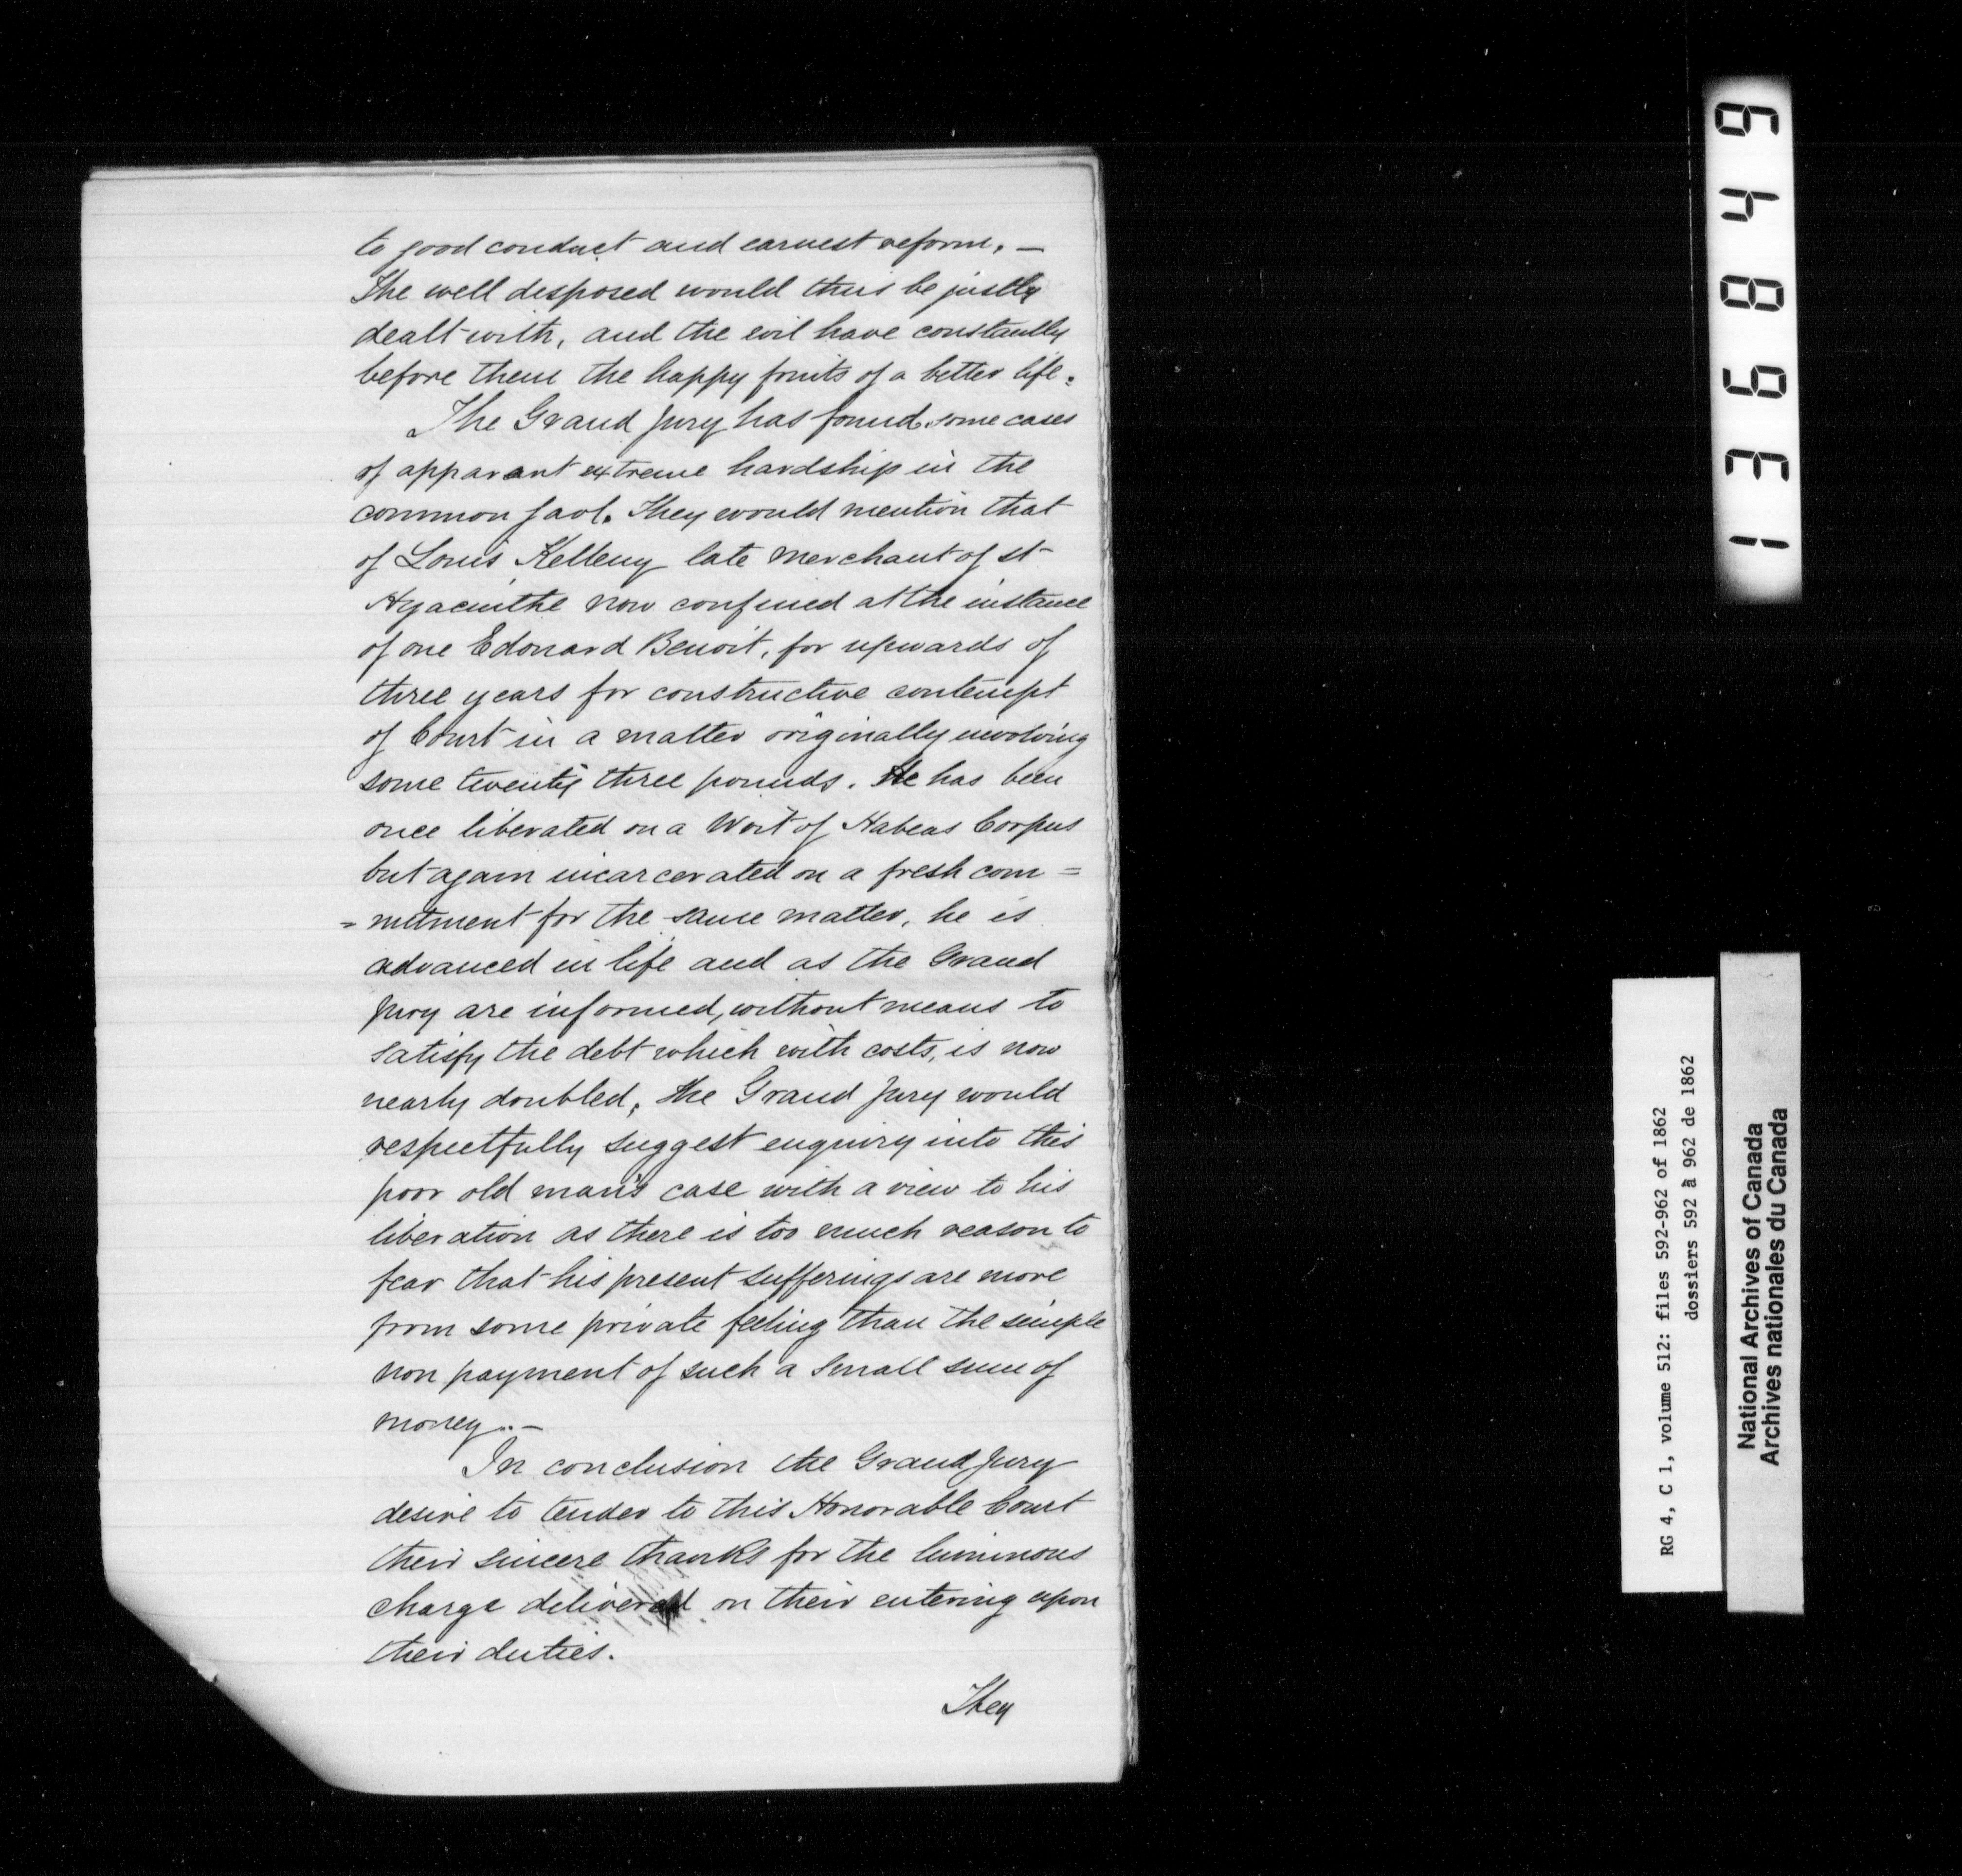 to good conduct and earnest reform. —
The well disposed would thus be justly
dealt with, and the evil have constantly
before them the happy fruits of a better life.
The Grand Jury has found some cases
of apparant extreme hardship in the
common Jaol. They would mention that
of Louis Kelleny late merchant of St
Hyacinthe now confined at the instance
of one Edouard Benoit, for upwards of
three years for constructive contempt
of Court in a matter originally involving
some twenty three pounds. He has been
once liberated on a Writ of Habeas Corpus
but again incarcerated on a fresh com =
= mitment for the same matter, he is
advanced in life and as the Grand
Jury are informed, without means to
satisfy the debt which with costs, is now
nearly doubled, the Grand Jury would
respectfully suggest enquiry into this
poor old man's case with a view to his
liberation as there is too much reason to
fear that his present sufferings are more
from some private feeling than the simple
non payment of such a small sum of
money. —
In conclusion the Grand Jury
desire to tender to this Honorable Court
their sincere thanks for the luminous
charge delivered on their entering upon
their duties.
They
136849
RG 4, C 1, volume 512: files 592-962 of 1862
dossiers 592 à 962 de 1862
National Archives of Canada
Archives nationales du Canada